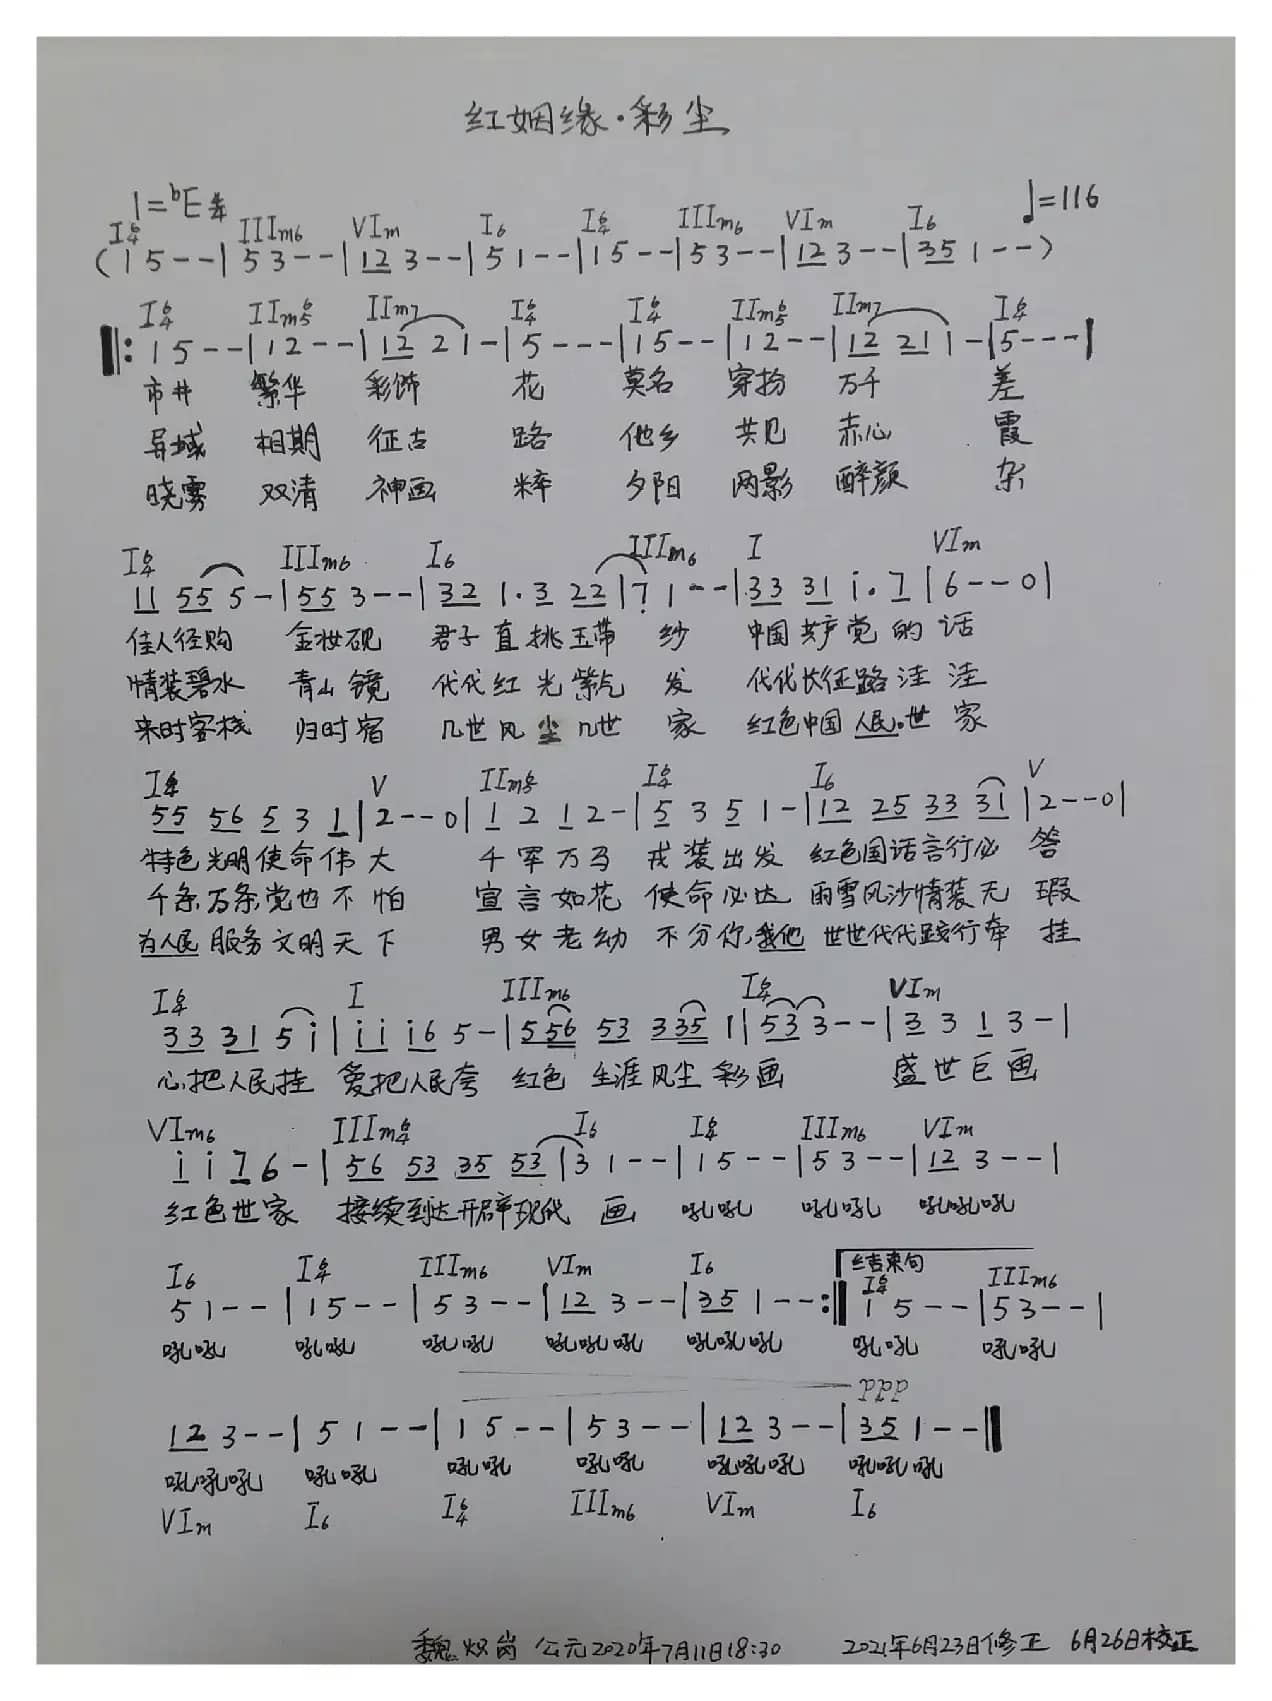 红姻缘·彩尘
1=ᵇE 4/4 ♩=116
I⁶₄ IIIm6 VIm I6 I⁶₄ IIIm6 VIm I6
(1 5 - - | 5 3 - - | 12 3 - - | 5 1 - - | 1 5 - - | 5 3 - - | 12 3 - - | 35 1 - - )
I⁶₄ IIm⁶₅ IIm7 I⁶₄ I⁶₄ IIm⁶₅ IIm7 I⁶₄
‖: 1 5 - - | 1 2 - - | 12 2 1 - | 5 - - - | 1 5 - - | 1 2 - - | 12 21 1 - | 5 - - - |
市井 繁华 彩饰 花 莫名 穿扮 万千 差
异域 相期 征古 路 他乡 共见 赤心 霞
晓雾 双清 神画 粹 夕阳 两影 醉颜 杂
I⁶₄ IIIm6 I6 IIIm6 I VIm
11 55 5 - | 55 3 - - | 32 1·3 22 | 7̣ 1 - - | 33 31 i·7 | 6 - - 0 |
佳人径购 金妆砚 君子直挑玉带 纱 中国共产党的话
情装碧水 青山镜 代代红光紫气 发 代代长征路洼洼
来时客栈 归时宿 几世风尘几世 家 红色中国人民·世家
I⁶₄ V IIm⁶₅ I⁶₄ I6 V
55 56 5 3 1 | 2 - - 0 | 1 2 1 2 - | 5 3 5 1 - | 12 25 33 31 | 2 - - 0 |
特色光明使命伟大 千军万马 戎装出发 红色国话言行必 答
千条万条党也不怕 宣言如花 使命必达 雨雪风沙情装无 瑕
为人民服务文明天下 男女老幼 不分你,我他 世世代代践行牵 挂
I⁶₄ I IIIm6 I⁶₄ VIm
33 31 5 i | ii i6 5 - | 556 53 335 1 | 53 3 - - | 3 3 1 3 - |
心把人民挂 爱把人民夸 红色 生涯风尘彩画 盛世巨画
VIm6 IIIm⁶₄ I6 I⁶₄ IIIm6 VIm
i i 7 6 - | 56 53 35 53 | 3 1 - - | 1 5 - - | 5 3 - - | 12 3 - - |
红色世家 接续到达开辟现代 画 吼吼 吼吼 吼吼吼
I6 I⁶₄ IIIm6 VIm I6 结束句 I⁶₄ IIIm6
5 1 - - | 1 5 - - | 5 3 - - | 12 3 - - | 35 1 - - :‖ 1 5 - - | 5 3 - - |
吼吼 吼吼 吼吼 吼吼吼 吼吼吼 吼吼 吼吼
ppp
12 3 - - | 5 1 - - | 1 5 - - | 5 3 - - | 12 3 - - | 35 1 - - ‖
吼吼吼 吼吼 吼吼 吼吼 吼吼吼 吼吼吼
VIm I6 I⁶₄ IIIm6 VIm I6
魏炽岗 公元2020年7月11日18:30 2021年6月23日修正 6月26日校正